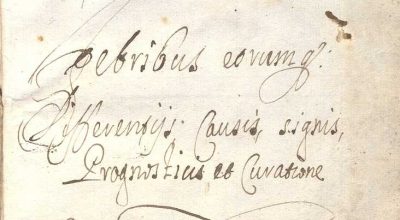 Febribus eorumq:
Differentijs, Causis, signis,
Prognosticis et Curatione